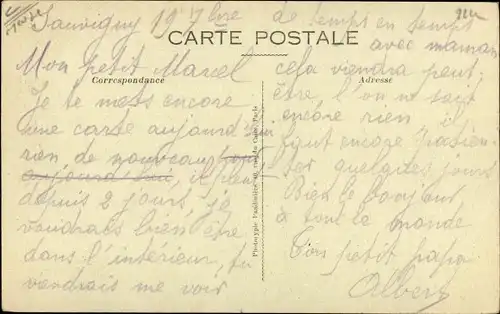 Sauvigny 19 7bre
CARTE POSTALE
Correspondance
Adresse
Mon petit Marcel
Je te mets encore
une carte aujourd'hui
rien de nouveau
aujourd'hui, il pleut
depuis 2 jours, je
voudrais bien être
dans l'intérieur, tu
viendrais me voir
de temps en temps
avec maman
cela viendra peut-
être l'on ne sait
encore rien il
faut encore patien-
ter quelques jours
Bien le bonjour
à tout le monde
Ton petit papa
Albert